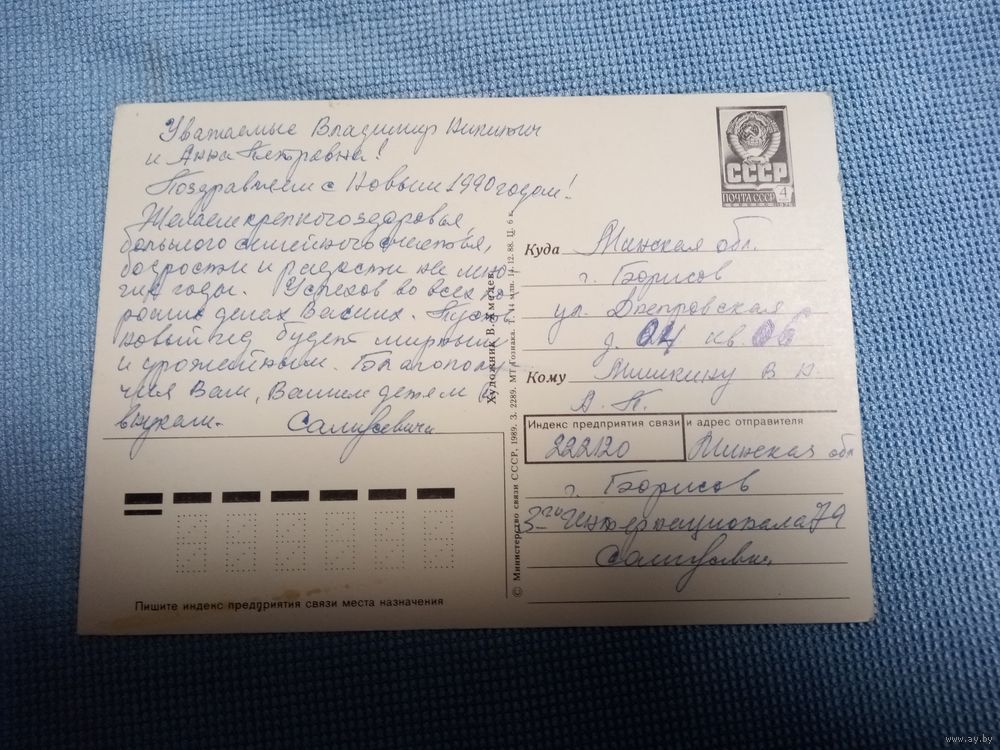 Уважаемые Владимир Никитич
и Анна Петровна!
Поздравляем с Новым 1990 годом!
Желаем крепкого здоровья,
большого семейного счастья,
бодрости и радости на мно-
гие годы. Успехов во всех хо-
роших делах Ваших. Пусть
новый год будет мирным
и урожайным. Благополу-
чия Вам, Вашим детям и
внукам.
СССР
ПОЧТА СССР
4
Куда Минская обл.
г. Борисов
ул. Днепровская
д. кв.
Кому Мишкину В Н
А. П.
Индекс предприятия связи и адрес отправителя
222120 Минская обл
г. Борисов
3го Интернационала 79
Художник В. Хмелев
© Министерство связи СССР, 1989. З. 2289. МТ Гознака. Т. 14 млн. 14.12.88. Ц. 6 к.
Пишите индекс предприятия связи места назначения
www.ay.by